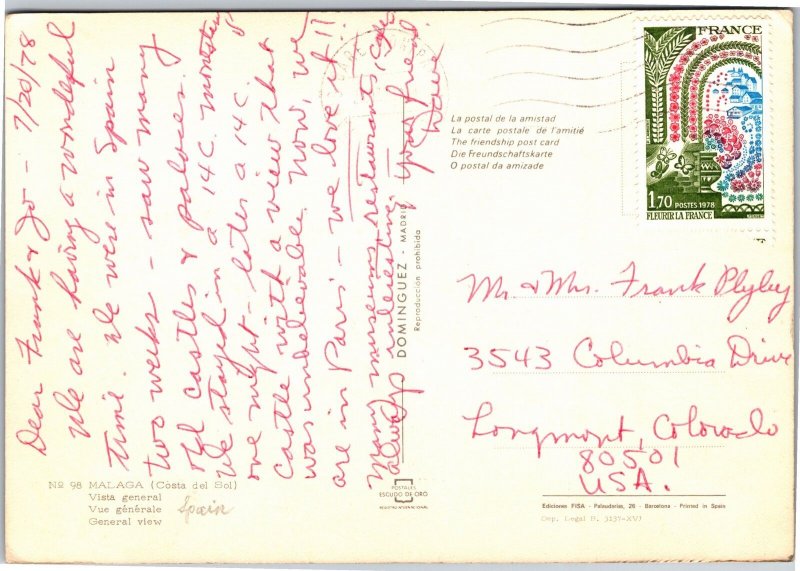 Dear Frank & Jo - 7/20/78
We are having a wonderful
time. We were in Spain
two weeks - saw many
old castles & palaces.
We stayed in a 14C monastery
one night - later a 14C.
Castle with a view that
was unbelievable. Now, we
are in Paris - we love it!!
Many museums, restaurants, cafes
always interesting. Your friend,
Dave
Nº 98 MALAGA (Costa del Sol)
Vista general
Vue générale Spain
General view
DOMINGUEZ - MADRID
Reproducción prohibida
POSTALES
ESCUDO DE ORO
REGISTRO INTERNACIONAL
La postal de la amistad
La carte postale de l'amitié
The friendship post card
Die Freundschaftskarte
O postal da amizade
FRANCE
1,70 POSTES 1978
FLEURIR LA FRANCE
Mr. & Mrs. Frank Plyley
3543 Columbia Drive
Longmont, Colorado
80501
USA.
Ediciones FISA - Palaudarias, 26 - Barcelona - Printed in Spain
Dep. Legal B. 3137-XVI